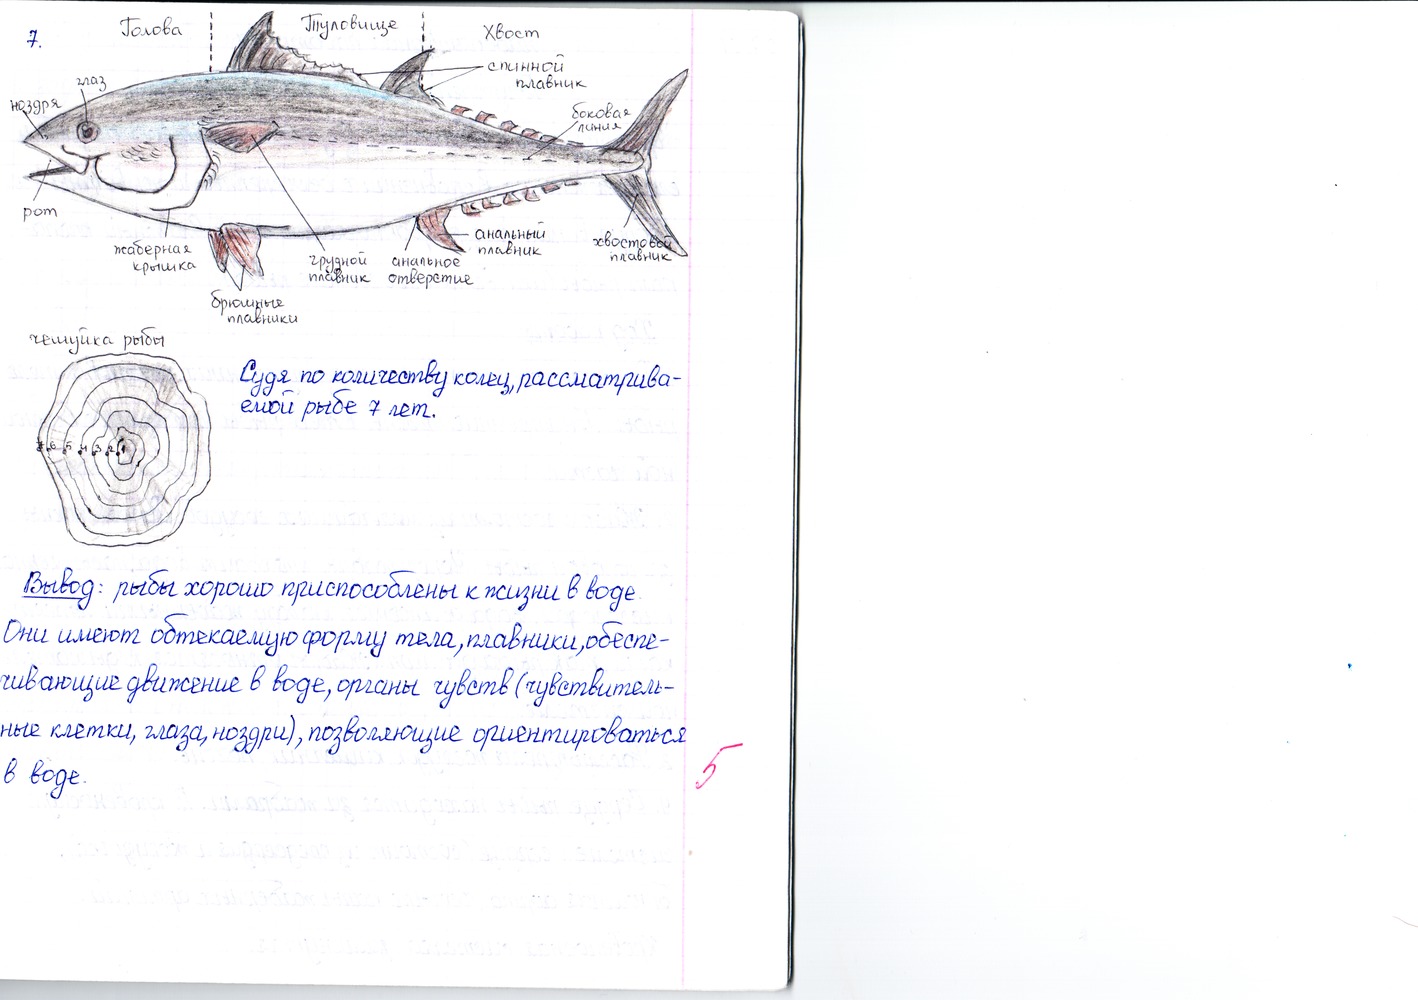 7.
Голова
Туловище
Хвост
спинной
плавник
глаз
ноздря
боковая
линия
рот
жаберная
крышка
грудной
плавник
анальное
отверстие
анальный
плавник
хвостовой
плавник
брюшные
плавники
чешуйка рыбы
7 6 5 4 3 2 1
Судя по количеству колец, рассматрива-
емой рыбе 7 лет.
Вывод: рыбы хорошо приспособлены к жизни в воде.
Они имеют обтекаемую форму тела, плавники, обеспе-
чивающие движение в воде, органы чувств (чувствитель-
ные клетки, глаза, ноздри), позволяющие ориентироваться
в воде.
5